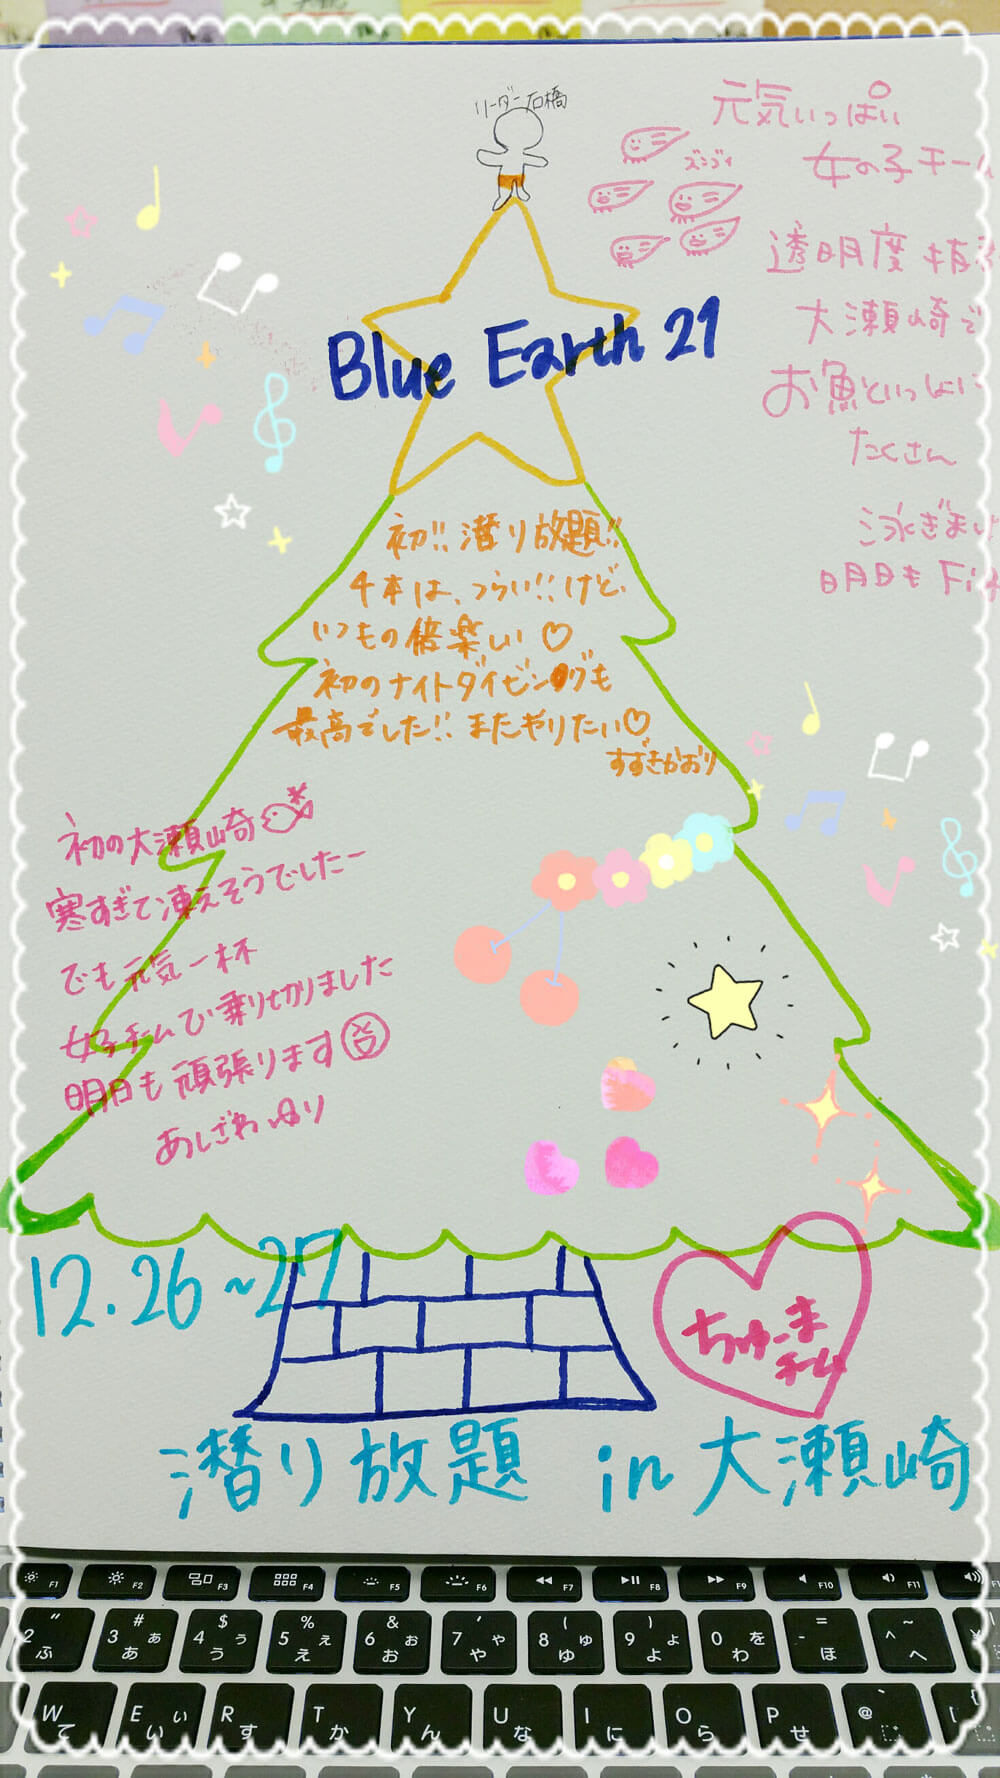 リーダー石橋
元気いっぱい
女の子チーム
ズンゴイ
透明度
大瀬崎で
お魚といっしょに
たくさん
泳ぎまし
明日も Fi
Blue Earth 21
初!!潜り放題!!
4本は、つらい!!けど、
いつもの倍楽しい♡
初のナイトダイビングも
最高でした!! またやりたい♡
すずきかおり
初の大瀬崎
寒すぎて凍えそうでしたー
でも元気一杯
女子チームで乗り切りました
明日も頑張ります
あしざわゆり
12.26~27
ちゅーま
チーム
潜り放題 in 大瀬崎
F1 F2 F3 F4 F5 F6 F7 F8 F9 F10 F11
" # $ % & ' ( ) = ~
2 ふ 3 ぁ あ 4 ぅ う 5 ぇ え 6 ぉ お 7 ゃ や 8 ゅ ゆ 9 ょ よ 0 を わ - ほ ^ へ
W て E ぃ い R す T か Y ん U な I に O ら P せ @ ` [ {